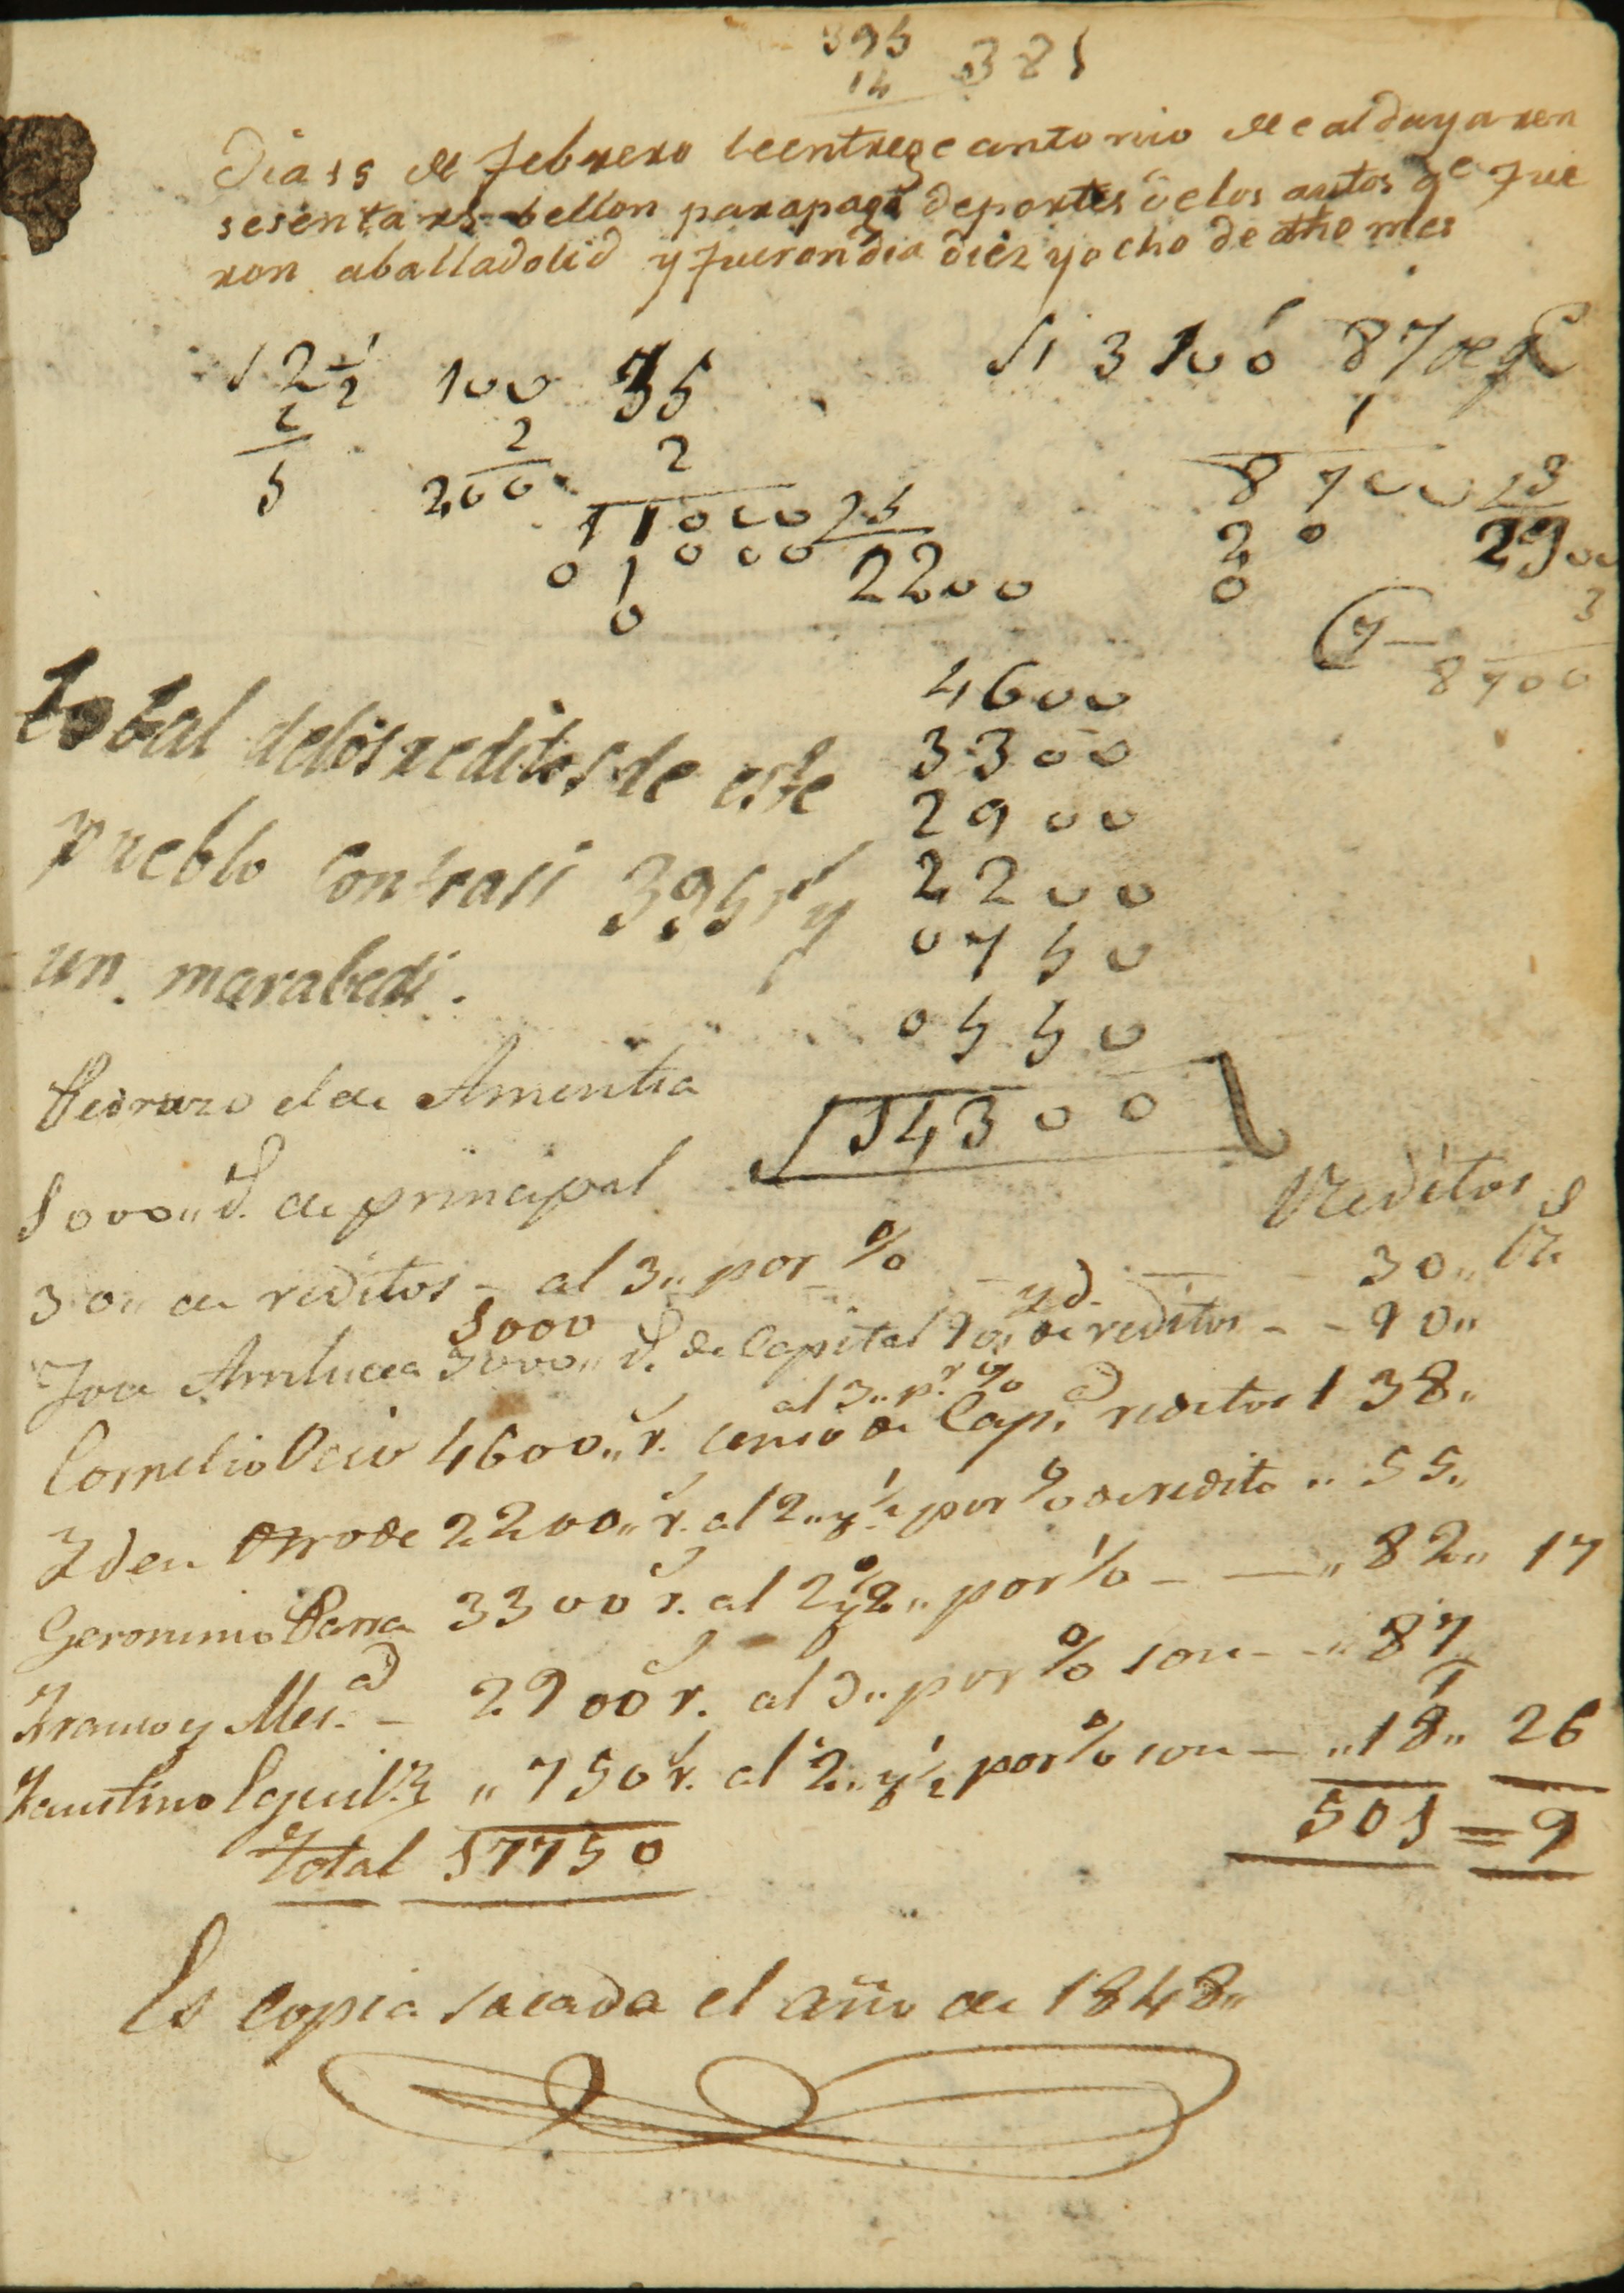 395 381
14
Dia 15 de febrero le entrege antonio de caldaya ren
sesenta rs bellon para pagar de portes de los autos qe fue
ron aballadolid y fueron dia diez y ocho de dho mes
Si 3 100 87 de qe
1
12 1/2 100 55
2 2 2
5 200
11000 25
01000 2200
0
8700 13
20 2900
0 3
8700
total delos reditos de este
pueblo contra si 395 rs y
un marabedi.
4600
3300
2900
2200
0750
0550
14300
Pedruzo el de Amentia
1000,, d. de principal
Reditos
30,, de reditos - al 3,, por % 30,, Rs
yd.
1000
Jose Ambucea 3000,, d. de Capital 90,, de reditos - - 90,,
al 3,, pr %
Cornelio Ocio 4600,, r. censo de Cap. reditos 138,,
Yden otro de 2200,, r. al 2,, y 1/2 por % de redito ,, 55,,
Geronimo Parra 3300 r. al 2 y 1/2,, por % - — ,, 82,, 17
Franco y Mer. - 2900 r. al 3,, por % son - - ,, 87,,
Faustino Eguilz ,, 750 r. al 2,, y 1/2 por % son - ,, 18,, 26
Total 17750 501 = 9
Es copia sacada el año de 1848,,